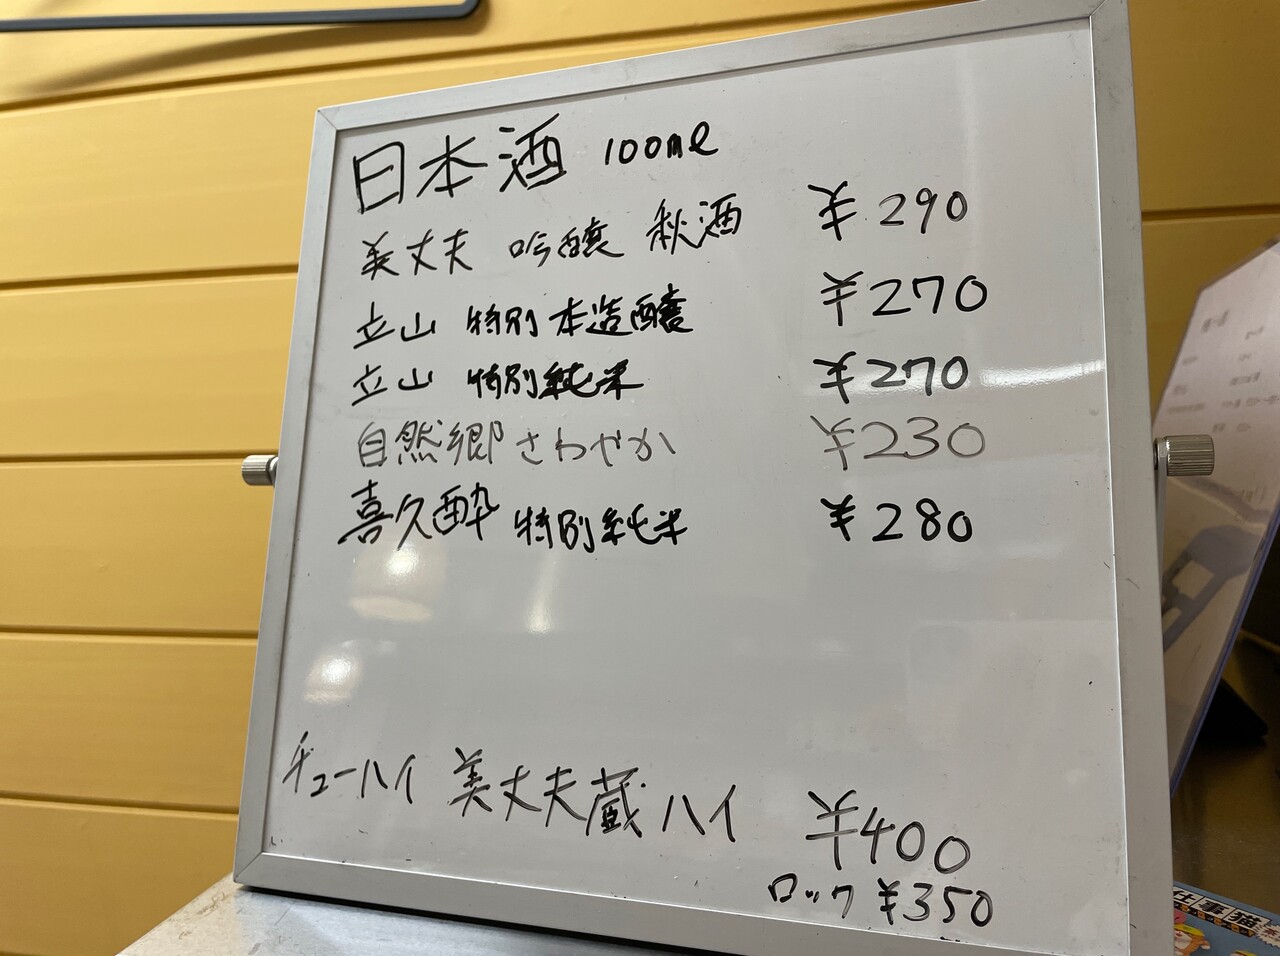 日本酒 100ml
美丈夫 吟醸 秋酒 ¥290
立山 特別本造醸 ¥270
立山 特別純米 ¥270
自然郷 さわやか ¥230
喜久酔 特別純米 ¥280
チューハイ 美丈夫蔵ハイ ¥400
ロック ¥350